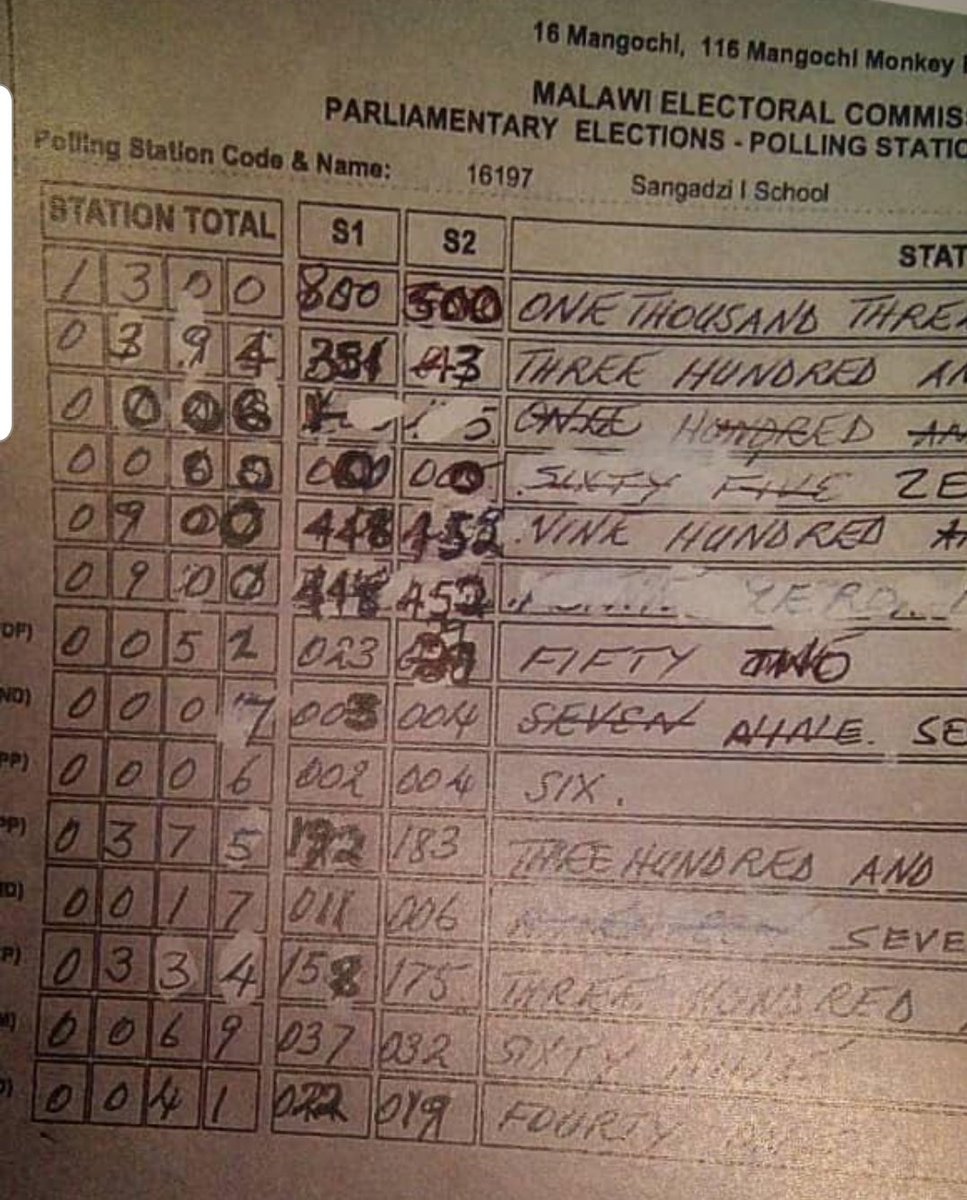 16 Mangochi, 116 Mangochi Monkey
MALAWI ELECTORAL COMMIS
PARLIAMENTARY ELECTIONS - POLLING STATIO
Polling Station Code & Name: 16197 Sangadzi I School
STATION TOTAL S1 S2 STAT
1 3 0 0 800 500 ONE THOUSAND THREE
0 3 9 4 351 43 THREE HUNDRED AN
0 0 0 6 5 ONE HUNDRED AN
0 0 0 0 000 000 SIXTY FIVE ZE
0 9 0 0 448 452 NINE HUNDRED
0 9 0 0 448 452 ZERO
DP) 0 0 5 2 023 FIFTY TWO
ND) 0 0 0 7 003 004 SEVEN NINE. SE
PP) 0 0 0 6 002 004 SIX.
PP) 0 3 7 5 192 183 THREE HUNDRED AND
D) 0 0 1 7 011 006 SEVE
P) 0 3 3 4 158 175 THREE HUNDRED
M) 0 0 6 9 037 032 SIXTY NINE
0 0 4 1 022 019 FOURTY